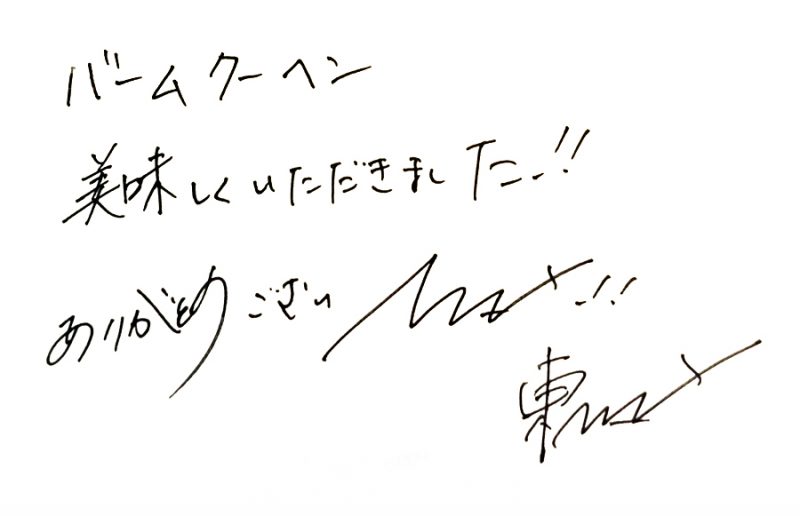 バームクーヘン
美味しくいただきました!!
ありがとうござい
東